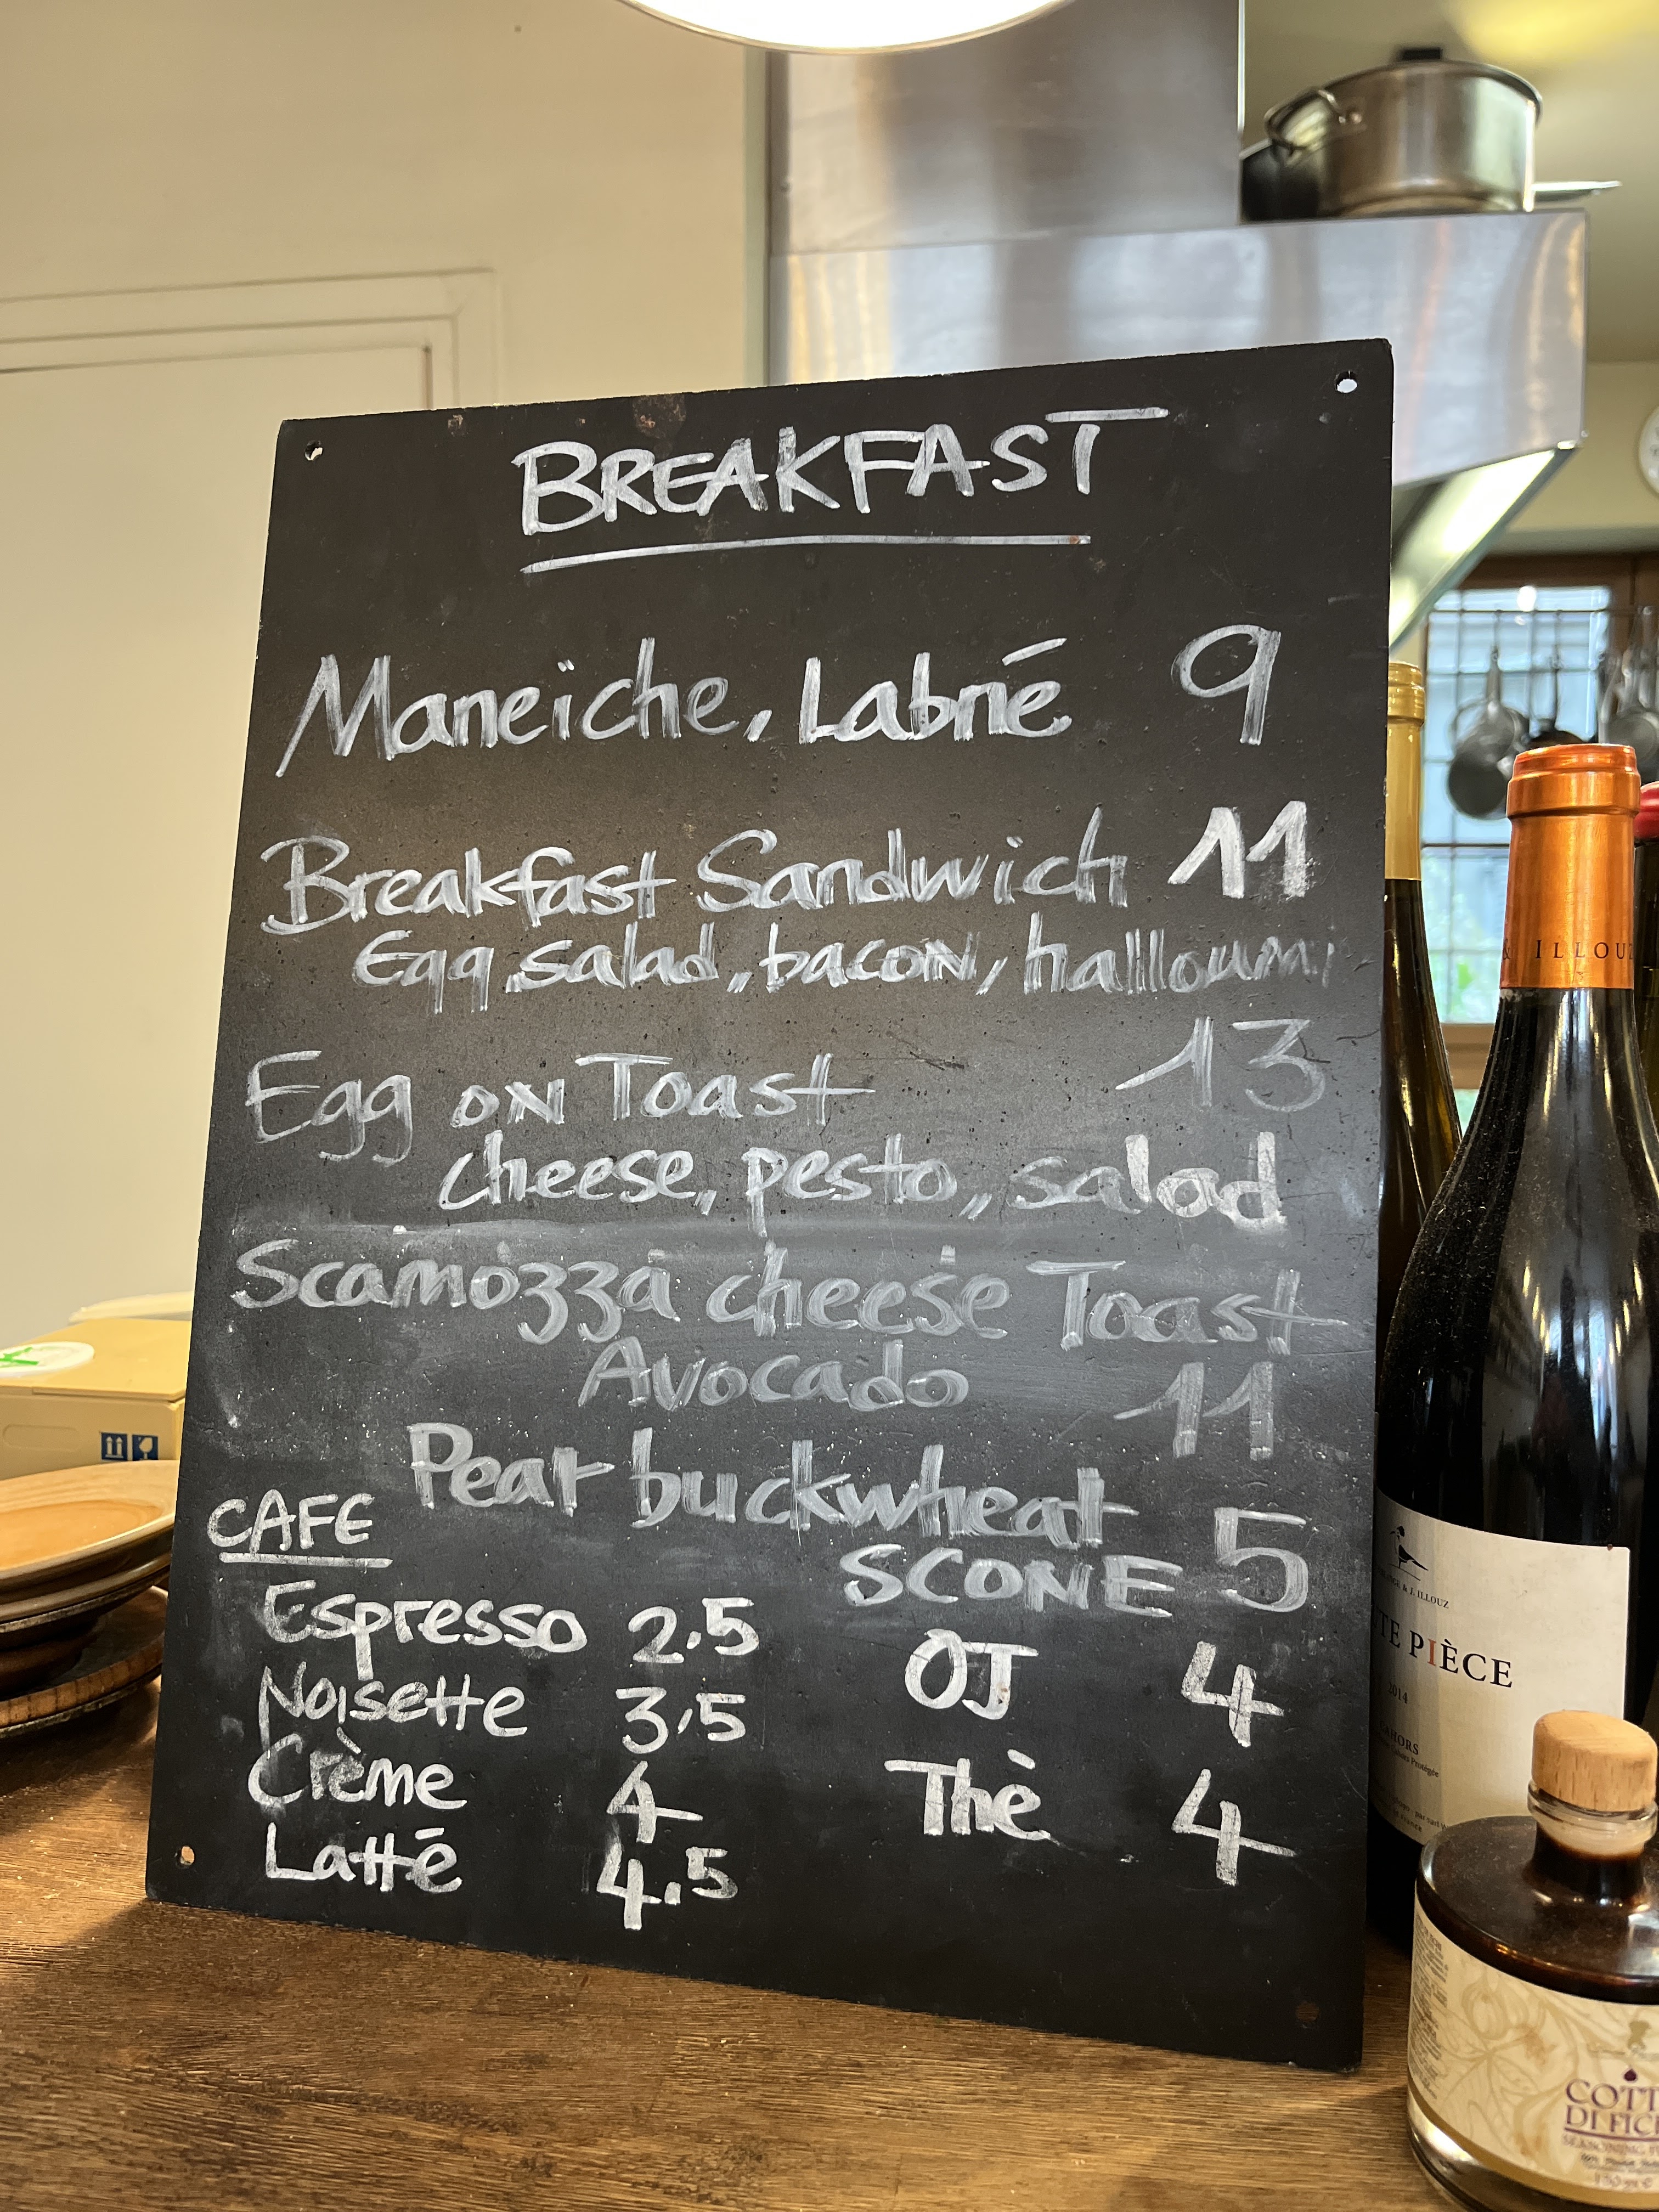 BREAKFAST
Maneiche, Labné 9
Breakfast Sandwich 11
Egg salad, bacon, halloumi
Egg on Toast 13
cheese, pesto, salad
Scamozza cheese Toast
Avocado 11
Pear buckwheat
SCONE 5
CAFE
Espresso 2.5
Noisette 3.5
Crème 4
Latté 4.5
OJ 4
Thè 4
& ILLOUZ
& J. ILLOUZ
TE PIÈCE
2014
AHORS
COTT
DI FIC